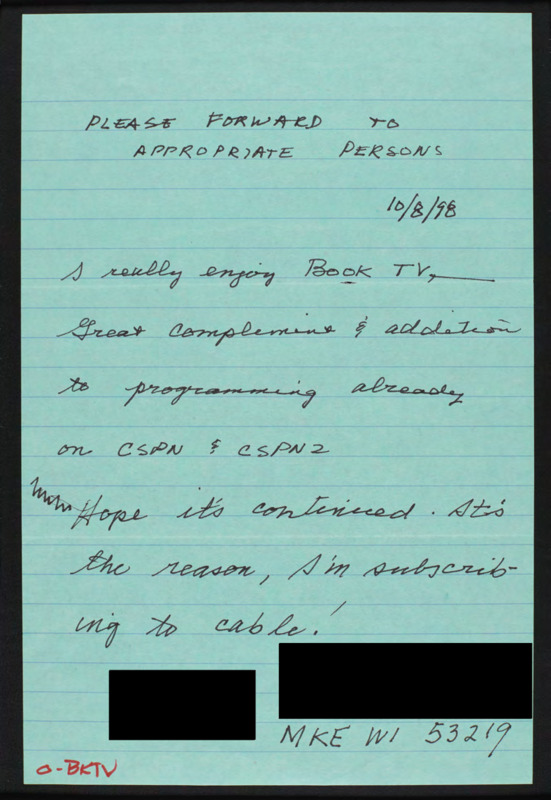 PLEASE FORWARD TO
APPROPRIATE PERSONS
10/8/98
I really enjoy BOOK TV,
Great complement & addition
to programming already
on CSPN & CSPN2
Hope it's continued. It's
the reason, I'm subscrib-
ing to cable!
MKE WI 53219
O-BKTV